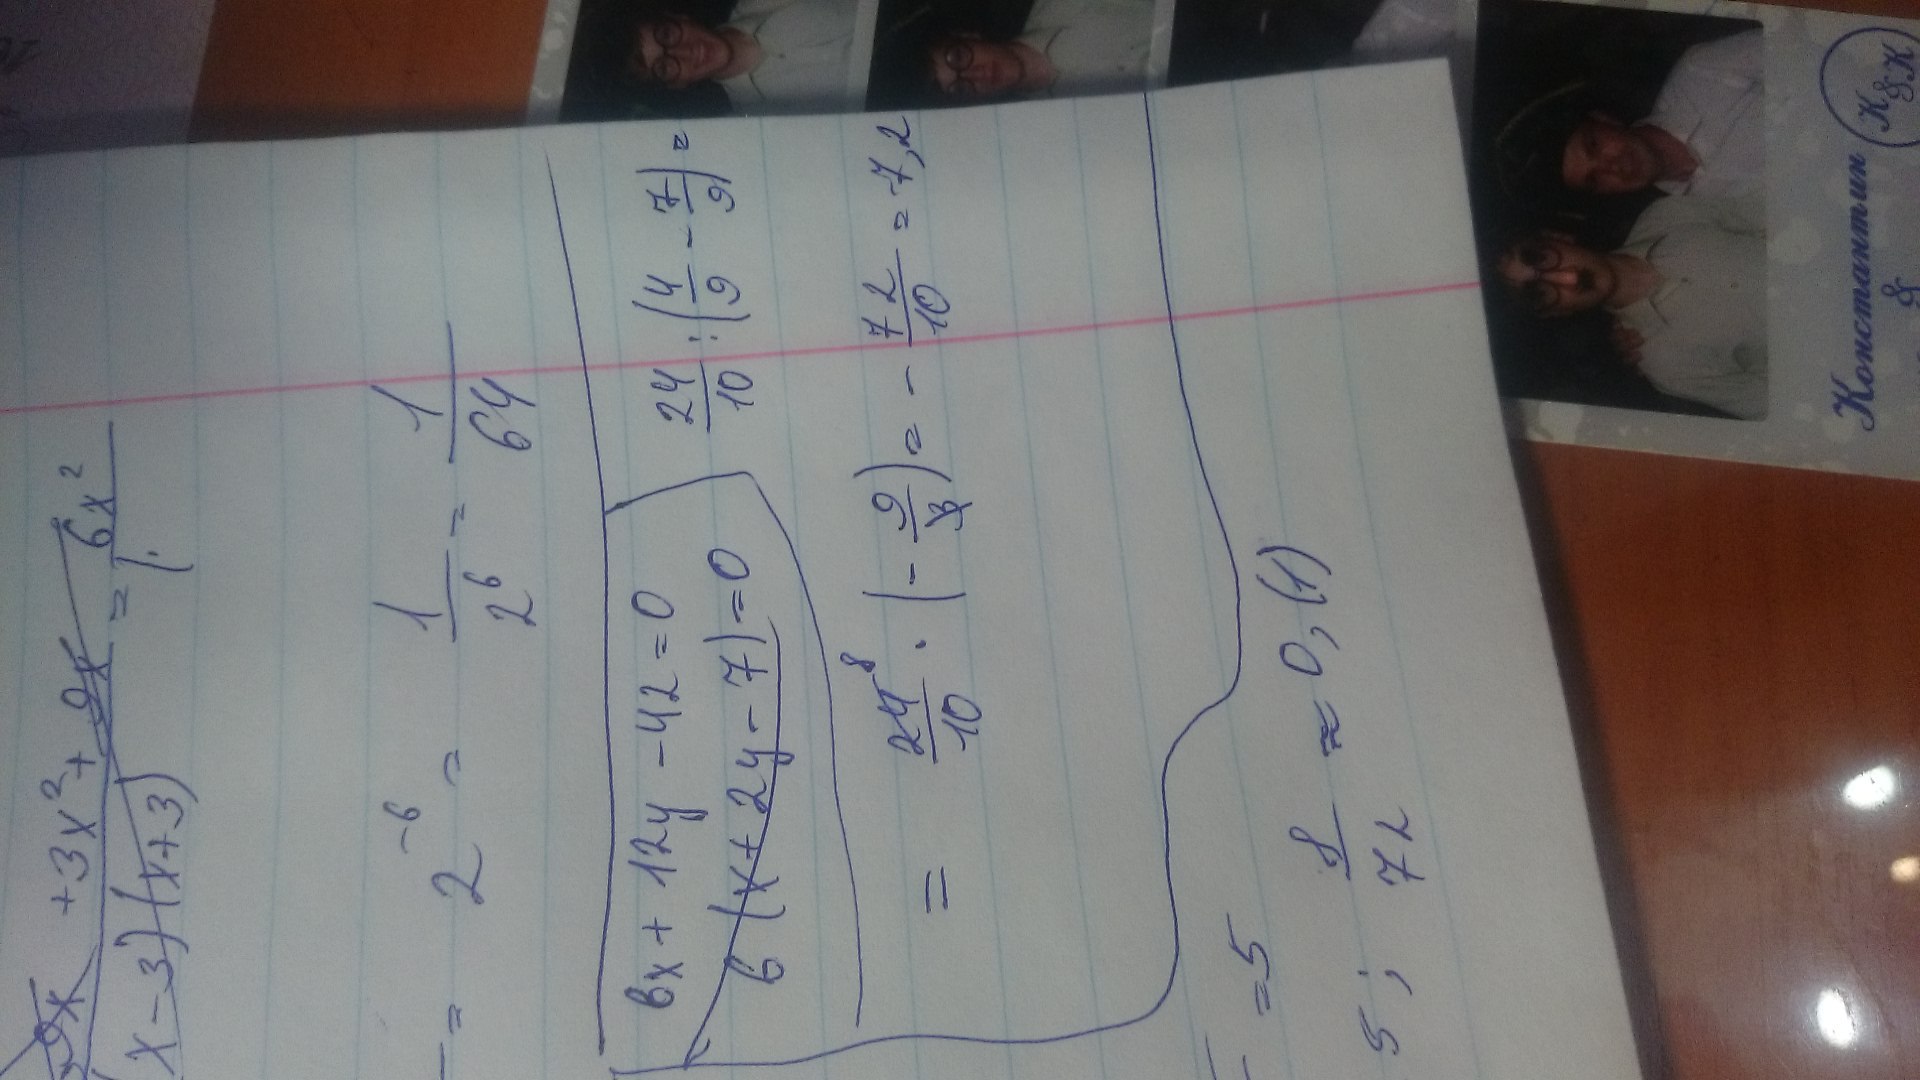 9x + 3x² + 9x = 6x²
(x-3)(x+3)
= 2⁻⁶ = 1/2⁶ = 1/64
6x + 12y - 42 = 0
6(x + 2y - 7) = 0
24/10 : (4/9 - 7/9) =
= 24⁸/10 · (-9/3) = - 72/10 = 7,2
= 5
5; 8/72 ≈ 0,(1)
Константин
&
К&К